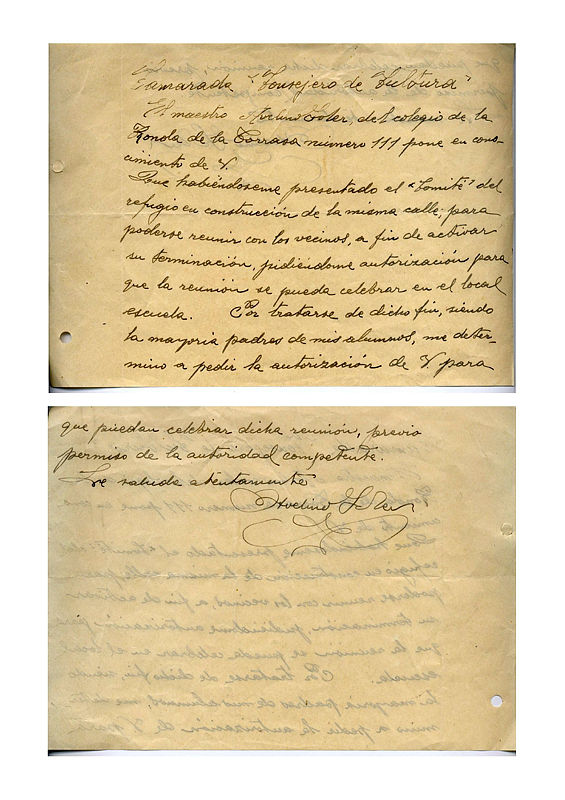 Camarada "Consejero de Cultura"
El maestro Avelino Soler, del colegio de la
Ronda de la Corrasa número 111 pone en cono-
cimiento de V.
Que habiéndoseme presentado el "Comité" del
refugio en construcción de la misma calle, para
poderse reunir con los vecinos, a fin de activar
su terminación, pidiéndome autorización para
que la reunión se pueda celebrar en el local
escuela. Por tratarse de dicho fin, siendo
la mayoria padres de mis alumnos, me deter-
mino a pedir la autorización de V. para
que puedan celebrar dicha reunión, previo
permiso de la autoridad competente.
Le saluda atentamente
Avelino Soler